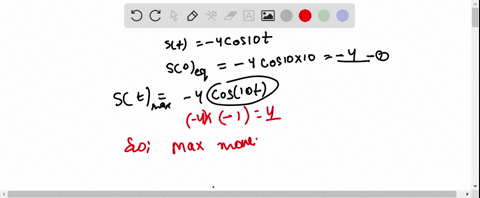 s(t) = -4cos10t
s(0)eq = -4 cos10×10 = -4 -①
s(t)max = -4 cos(10t)
(-4)×(-1) = 4
So; max move.